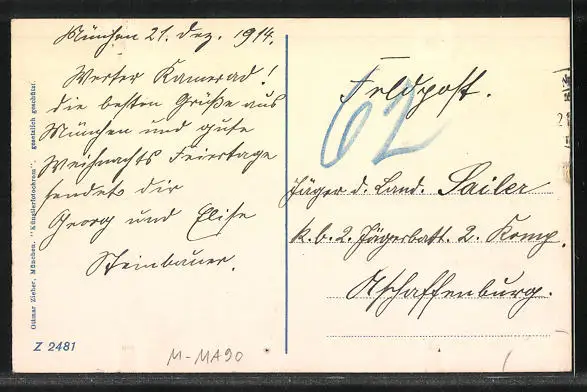 München 21. Dez. 1914.
Werter Kamerad!
die besten Grüße aus
München und gute
Weihnachts Feiertage
sendet dir
Georg und Elise
Steinbauer.
Feldpost.
62
Jäger d. Land. Sailer
k. b. 2. Jägerbatt. 2. Komp.
Aschaffenburg.
Ottmar Zieher, München. "Künstlerfotochrom". gesetzlich geschützt.
Z 2481
M-MA90